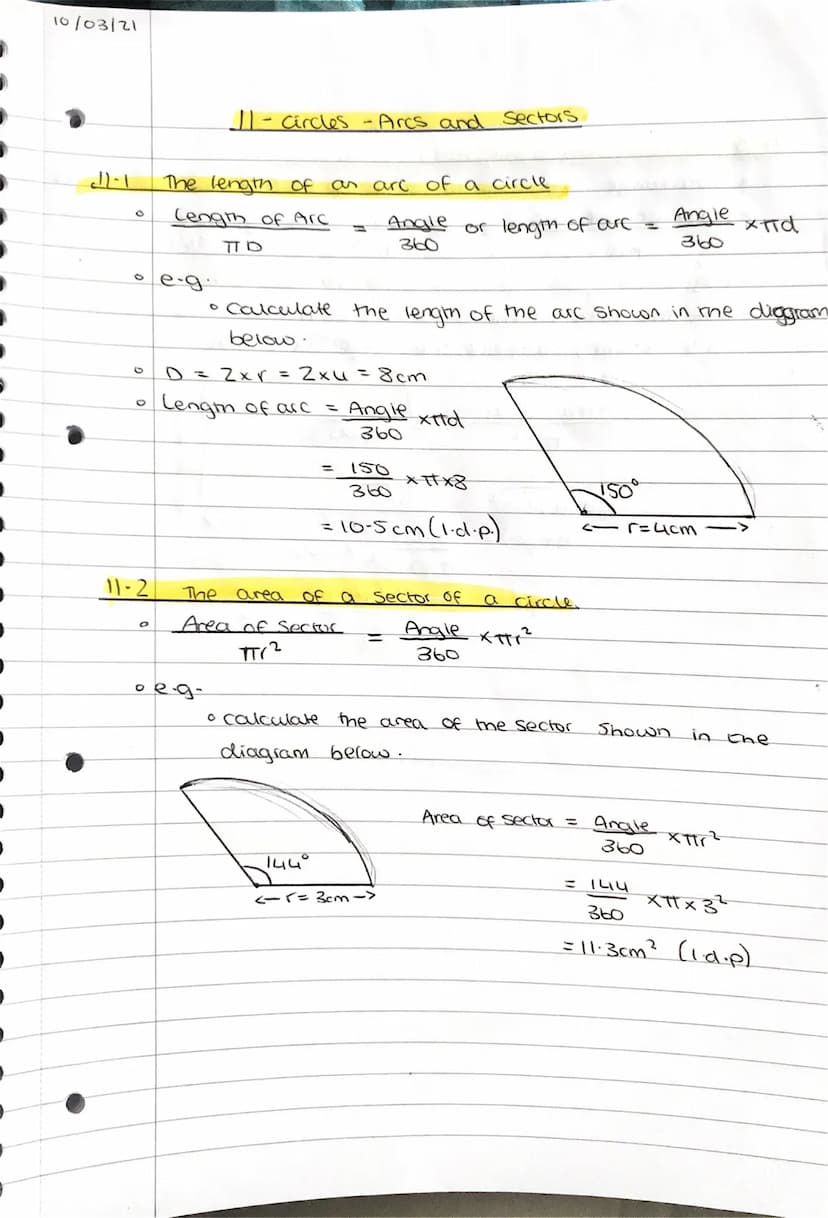 10/03/21
11 - Circles - Arcs and Sectors
11.1 The length of an arc of a circle
◦ Length of Arc / πD = Angle / 360 or length of arc = Angle / 360 × πd
◦ e.g.
◦ Calculate the length of the arc shown in the diggram
below.
◦ D = 2×r = 2×4 = 8cm
◦ Length of arc = Angle / 360 × πd
= 150 / 360 × π×8
= 10.5cm (1.d.p.)
150°
← r=4cm →
11.2 The area of a sector of a circle
◦ Area of Sector / πr² = Angle / 360 × πr²
◦ e.g.
◦ Calculate the area of the sector shown in the
diagram below.
144°
← r= 3cm →
Area of sector = Angle / 360 × πr²
= 144 / 360 × π × 3²
= 11.3cm² (1.d.p)